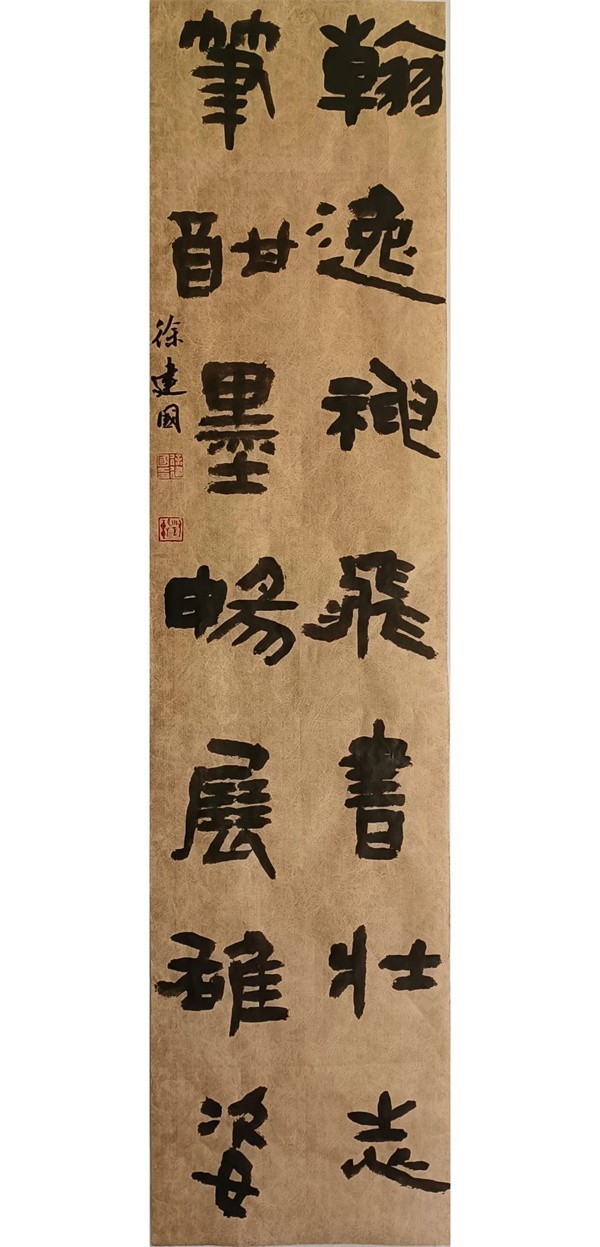 翰逸神飛書壯志
筆酣墨暢展雄姿
徐建國